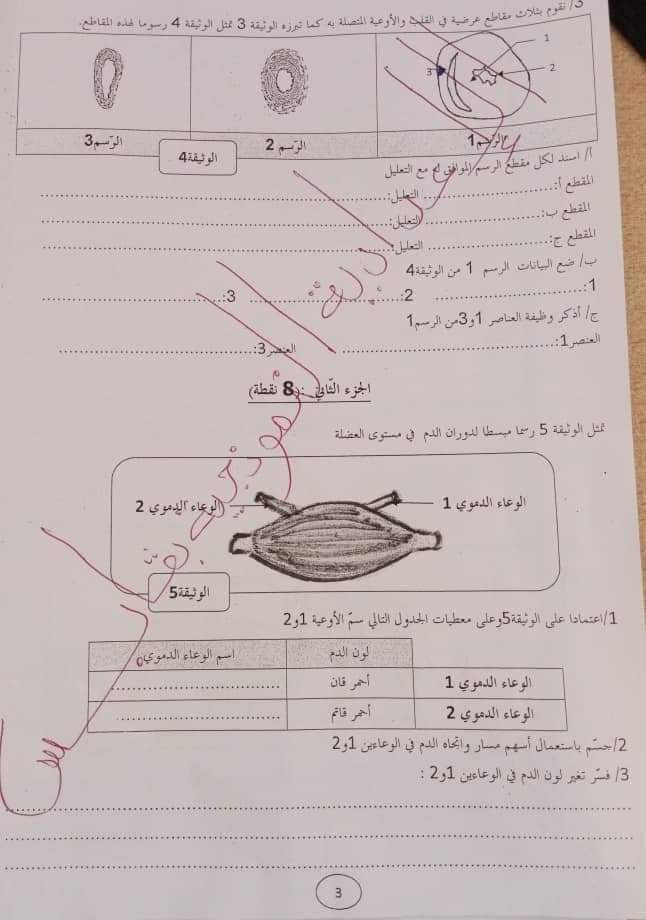 3/ نقوم بثلاث مقاطع عرضية في القلب والأوعية المتصلة به كما تبرزه الوثيقة 3 تمثل الوثيقة 4 رسوما لهذه المقاطع.
1
2
3
الرّسم1
الرّسم 2
الرّسم3
الوثيقة4
أ/ اسند لكل مقطع الرسم الموافق له مع التعليل
المقطع أ: ........ التعليل: ........
المقطع ب: ........ التعليل: ........
المقطع ج: ........ التعليل: ........
ب/ ضع البيانات الرسم 1 من الوثيقة4
1: ........ 2: ........ 3: ........
ج/ أذكر وظيفة العناصر 1و3من الرسم1
العنصر1: ........ العنصر3: ........
الجزء الثّاني : (8 نقطة)
تمثل الوثيقة 5 رسما مبسطا لدوران الدم في مستوى العضلة
الوعاء الدموي 1
الوعاء الدموي 2
الوثيقة5
1/اعتمادا على الوثيقة5وعلى معطيات الجدول التالي سمّ الأوعية 1و2
لون الدم
اسم الوعاء الدموي
الوعاء الدموي 1
أحمر قان
........
الوعاء الدموي 2
أحمر قاتم
........
2/جسّم باستعمال أسهم مسار واتجاه الدم في الوعاءين 1و2
3/ فسّر تغير لون الدم في الوعاءين 1و2 :
3